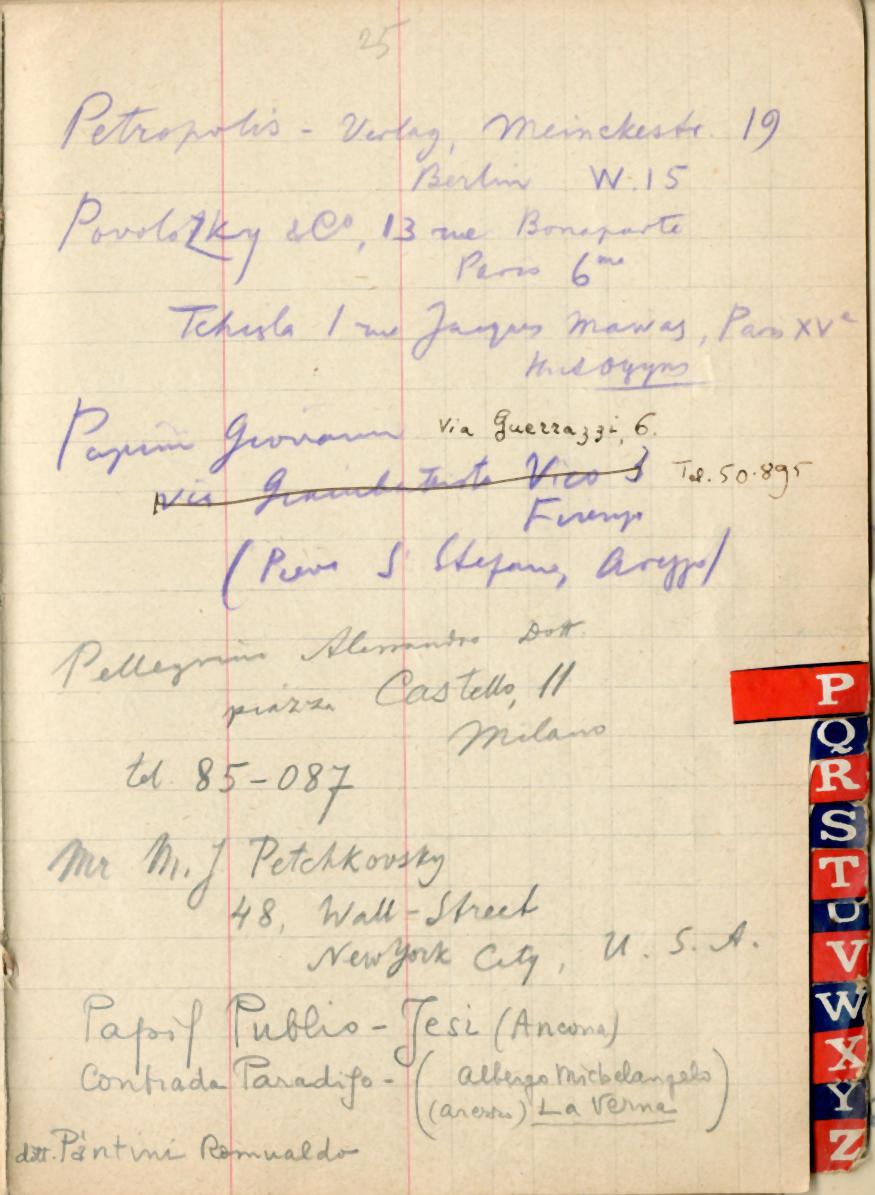 25
Petropolis - Verlag, Meinekestr. 19
Berlin W.15
Povolotzky & Co, 13 rue Bonaparte
Paris 6me
Tchisla 1 rue Jacques Mawas, Paris XVe
Papini Giovanni Via Guerrazzi, 6.
via Giambattista Vico 3 Tel. 50.895
Firenze
(Pieve S. Stefano, Arezzo)
Pellegrini Alessandro Dott.
piazza Castello, 11
Milano
tel. 85-087
Mr M. J Petchkovsky
48, Wall-Street
New York City, U. S. A.
Papis Publio - Jesi (Ancona)
Contrada Paradiso - (Albergo Michelangelo
(Arezzo) La Verna)
dott. Pàntini Romualdo
P
Q
R
S
T
U
V
W
X
Y
Z